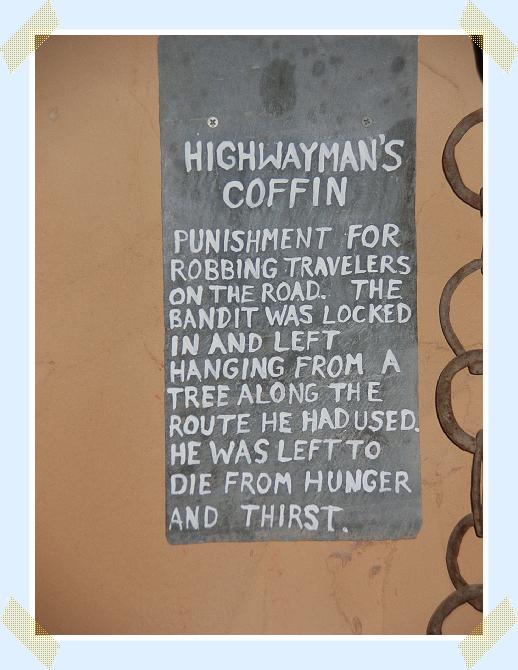 HIGHWAYMAN'S
COFFIN
PUNISHMENT FOR
ROBBING TRAVELERS
ON THE ROAD. THE
BANDIT WAS LOCKED
IN AND LEFT
HANGING FROM A
TREE ALONG THE
ROUTE HE HAD USED.
HE WAS LEFT TO
DIE FROM HUNGER
AND THIRST.